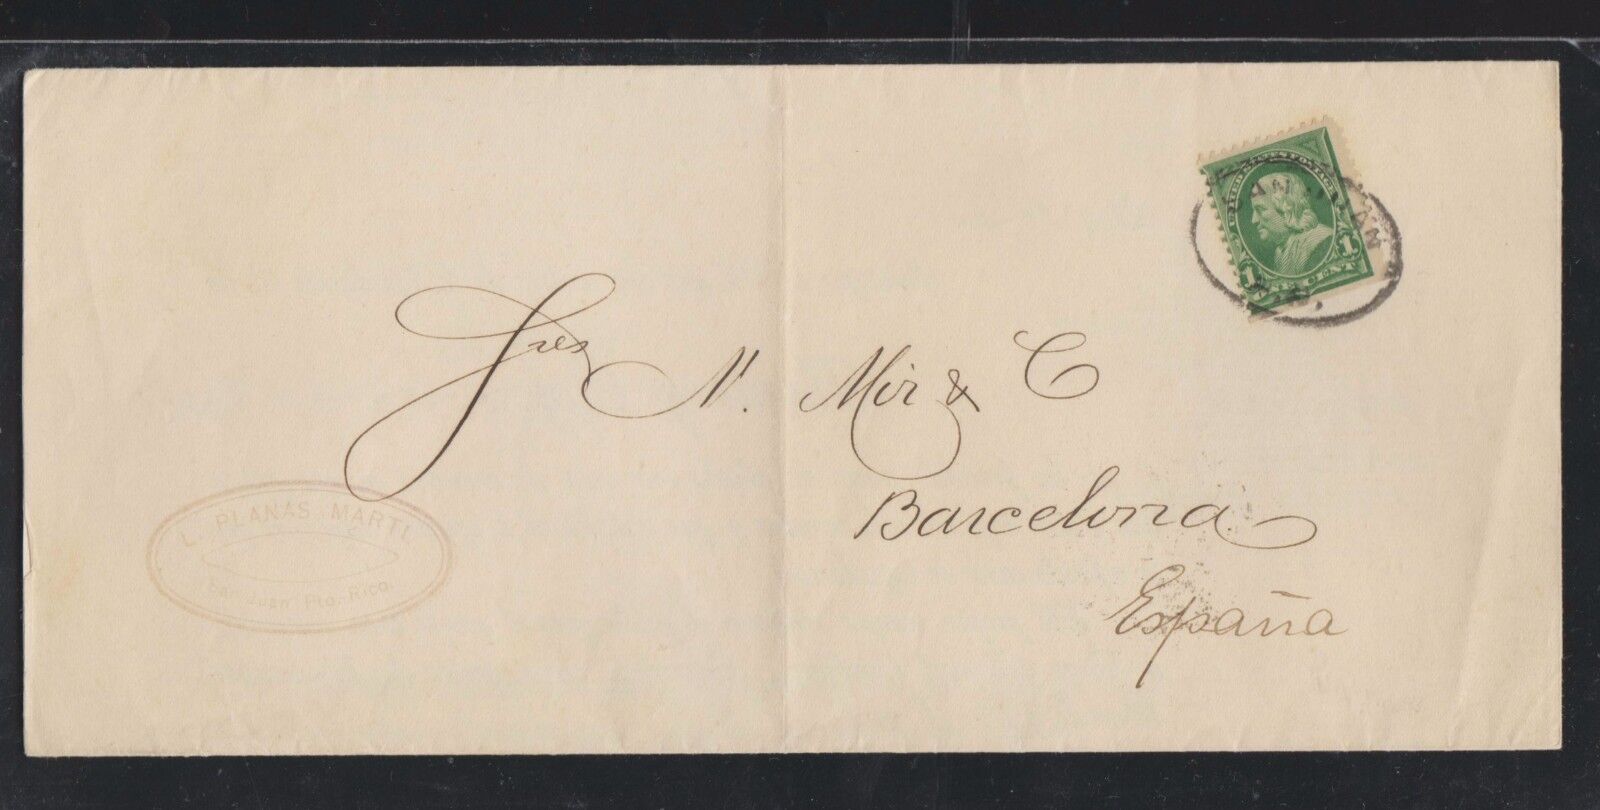 UNITED STATES POSTAGE
1 1
ONE CENT
SAN JUAN
P.R.
Sres N. Mir & C
Barcelona
España
L. PLANAS MARTI.
San Juan Pto. Rico.